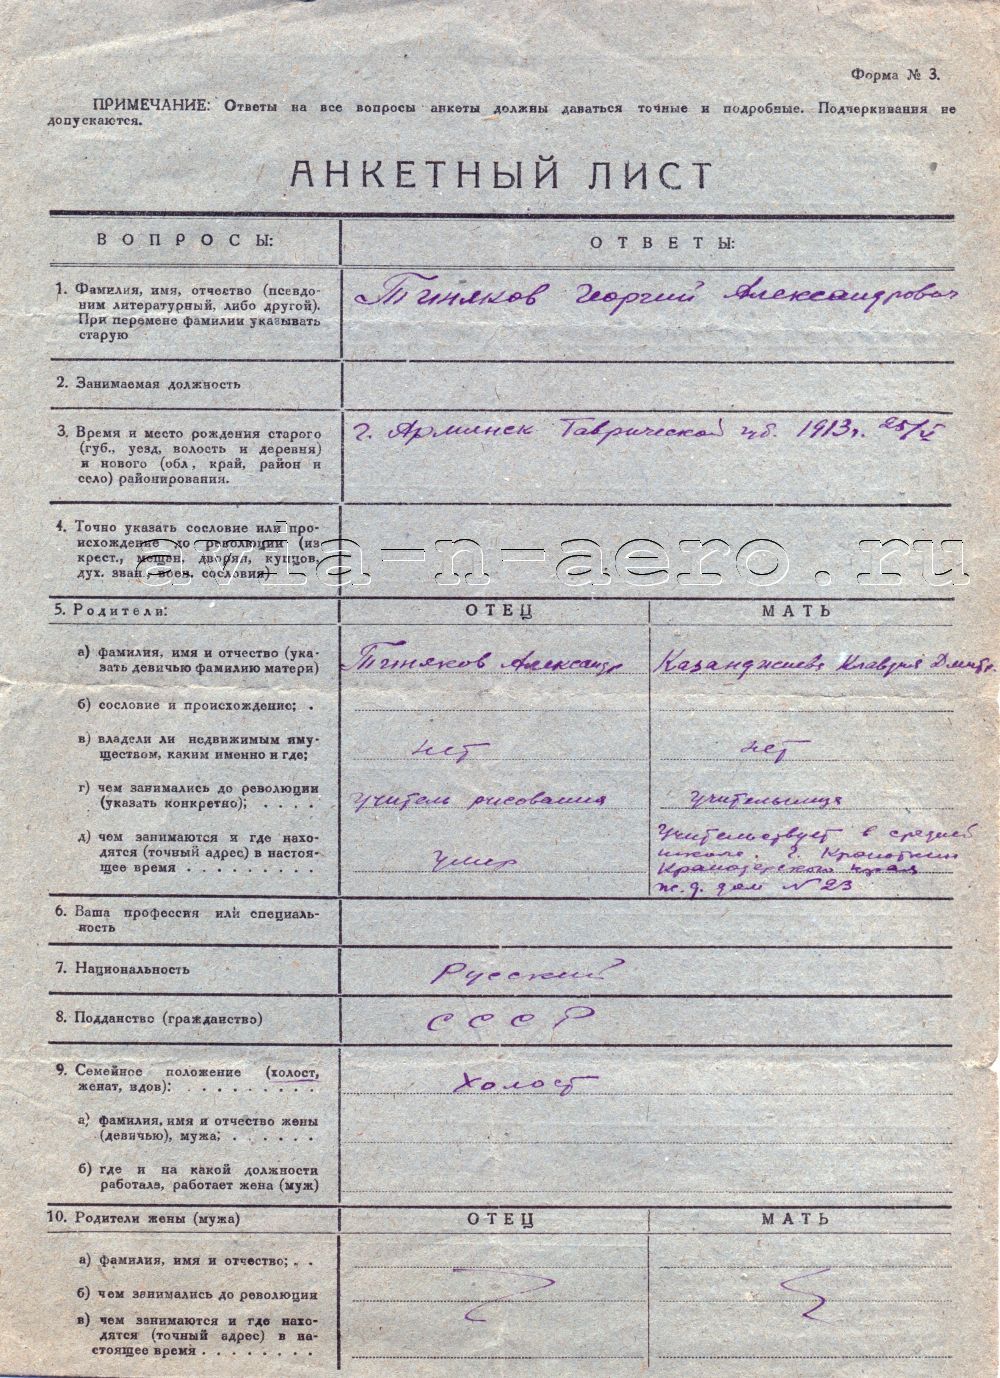 Форма № 3.
ПРИМЕЧАНИЕ: Ответы на все вопросы анкеты должны даваться точные и подробные. Подчеркивания не
допускаются.
АНКЕТНЫЙ ЛИСТ
ВОПРОСЫ: ОТВЕТЫ:
1. Фамилия, имя, отчество (псевдо-
ним литературный, либо другой).
При перемене фамилии указывать
старую
Тиняков Георгий Александрович
2. Занимаемая должность
3. Время и место рождения старого
(губ., уезд, волость и деревня)
и нового (обл., край, район и
село) районирования.
г. Армянск Таврической губ. 1913г. 25/V
4. Точно указать сословие или про-
исхождение до революции (из
крест., мещан, дворян, купцов,
дух. зван., воен. сословия)
avia-n-aero.ru
5. Родители: ОТЕЦ МАТЬ
а) фамилия, имя и отчество (ука-
зать девичью фамилию матери)
Тиняков Александр
Казанджиева Клавдия Дмитр.
б) сословие и происхождение; .
в) владели ли недвижимым иму-
ществом, каким именно и где;
нет нет
г) чем занимались до революции
(указать конкретно); . . . .
учитель рисования учительница
д) чем занимаются и где нахо-
дятся (точный адрес) в настоя-
щее время . . . . . . . . .
умер
Учительствует в средней
школе. г. Кропоткин
Краснодарского края
ж.д. дом №23
6. Ваша профессия или специаль-
ность
7. Национальность Русский
8. Подданство (гражданство) СССР
9. Семейное положение (холост,
женат, вдов): . . . . . . . . .
Холост
а) фамилия, имя и отчество жены
(девичью), мужа; . . . . . .
б) где и на какой должности
работала, работает жена (муж)
10. Родители жены (мужа) ОТЕЦ МАТЬ
а) фамилия, имя и отчество; . .
б) чем занимались до революции
в) чем занимаются и где нахо-
дятся (точный адрес) в на-
стоящее время . . . . . . . .